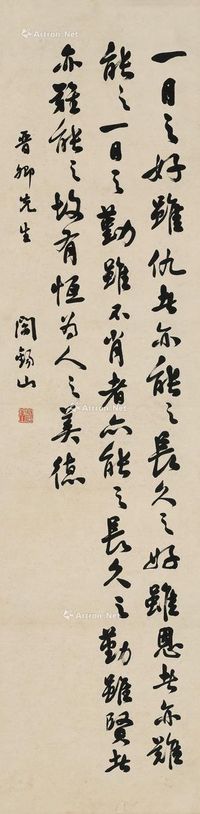 一日之好雖仇者亦能之長久之好雖恩者亦難
能之一日之勤雖不肖者亦能之長久之勤雖賢者
亦難能之故有恒為人之美德
晋卿先生
閻錫山
Artron.Net
Artron.Net
Artron.Net
Artron.Net